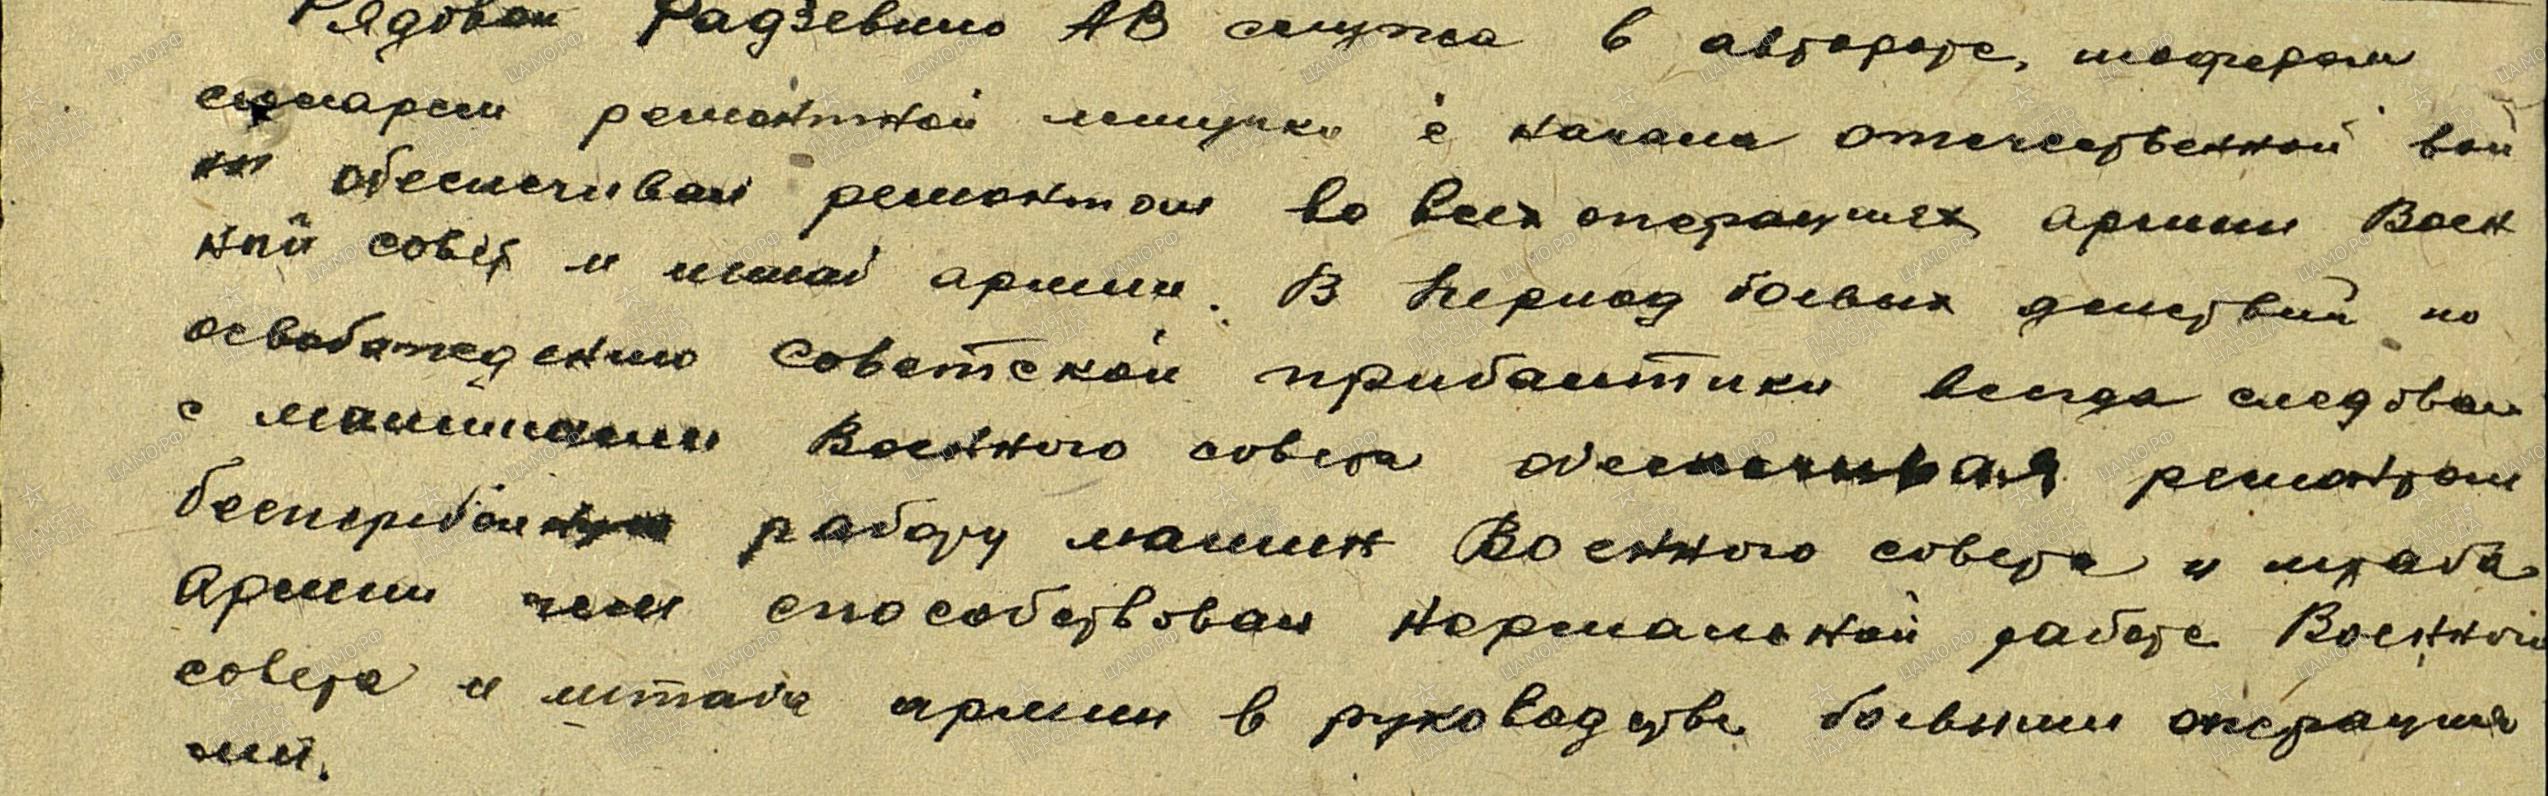 Рядовой Радзевило АВ служа в автороте, шофером
слесарем ремонтной летучки с начала отечественной вой
ны обеспечивал ремонтом во всех операциях армии Воен
ный совет и штаб армии. В период боевых действий по
освобаждению Советской прибалтики всегда следовал
с машинами Военного совета обеспечивая ремонтом
бесперебойную работу машин Военного совета и штаба
Армии чем способствовал нормальной работе Военного
совета и штаба армии в руководстве боевыми операция
ми.